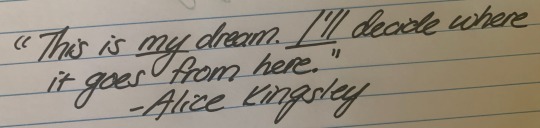 "This is my dream. I'll decide where
it goes from here."
-Alice Kingsley